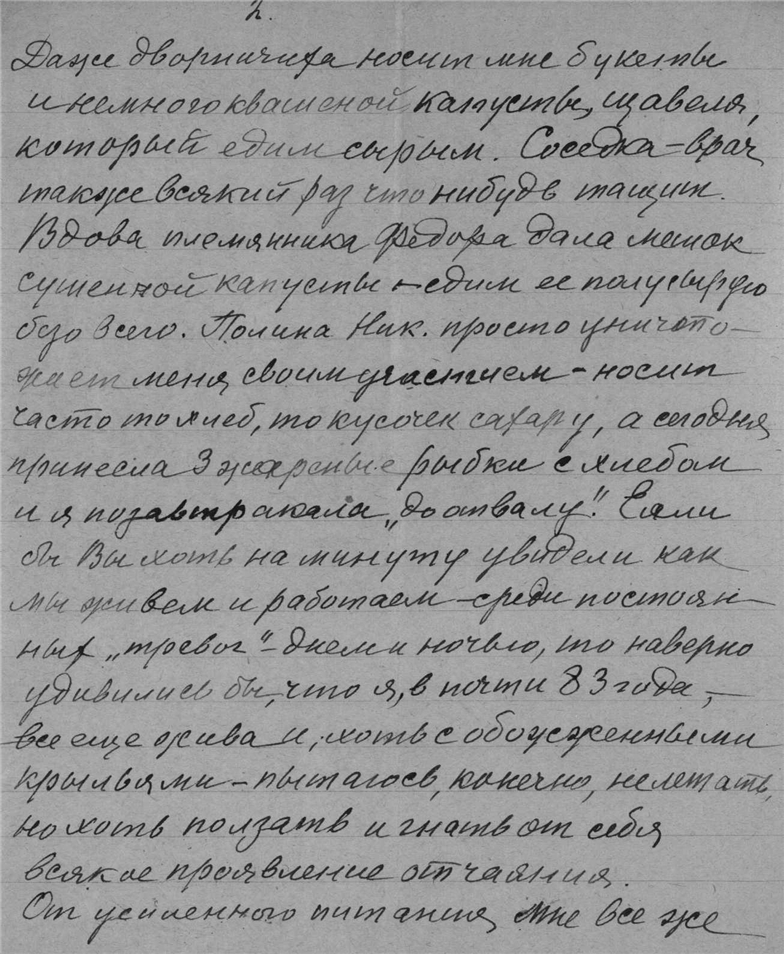 2.
Даже дворничиха носит мне букеты
и немного квашеной капусты, щавеля,
который едим сырым. Соседка – врач
также всякий раз что нибудь тащит.
Вдова племянника Федора дала мешок
сушенной капусты – едим ее полусырую
безо всего. Полина Ник. просто уничто-
жает меня своим участием – носит
часто то хлеб, то кусочек сахару, а сегодня
принесла 3 жареные рыбки с хлебом
и я позавтракала „до отвалу". Если
бы Вы хоть на минуту увидели как
мы живем и работаем – среди постоян-
ных „тревог" – днем и ночью, то наверно
удивились бы, что я, в почти 83 года, –
все еще жива и, хоть с обожженными
крыльями – пытаюсь, конечно, не летать,
но хоть ползать и гнать от себя
всякое проявление отчаяния.
От усиленного питания, мне все же